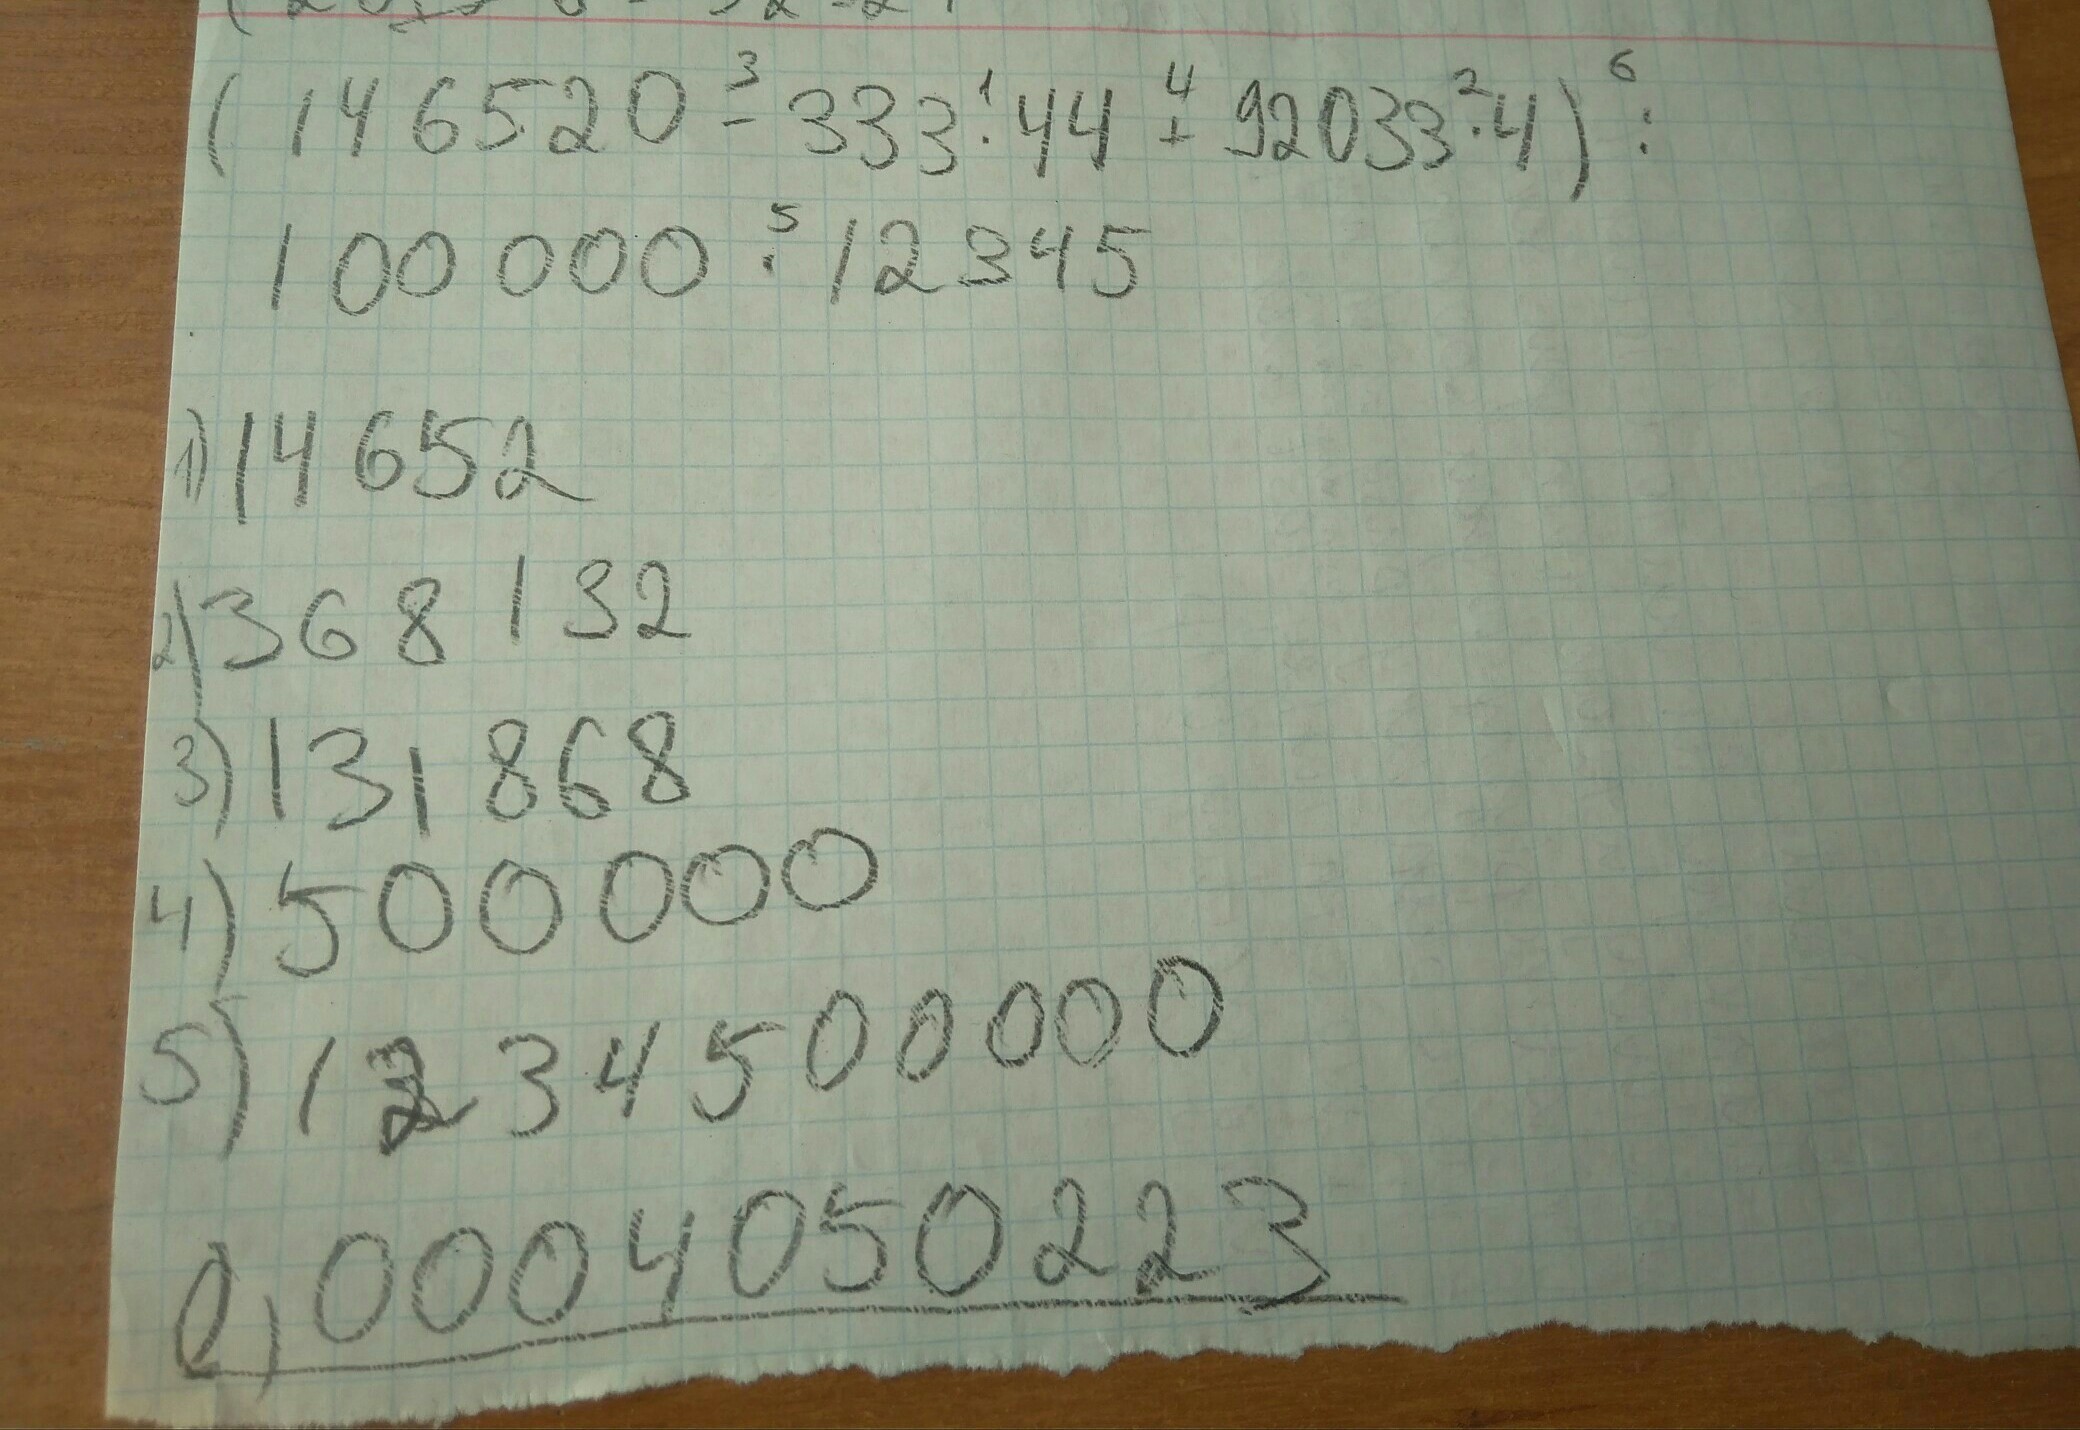 (146520 -³ 333 ·¹ 44 +⁴ 92033 ·² 4) :⁶
100 000 ·⁵ 12345
1) 14652
2) 368 132
3) 131 868
4) 500 000
5) 1234500000
0,0004050223